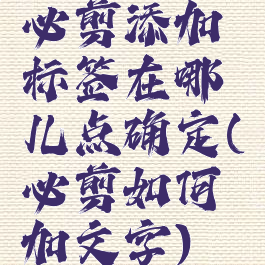 必剪添加
标签在哪
儿点确定(
必剪如何
加文字)